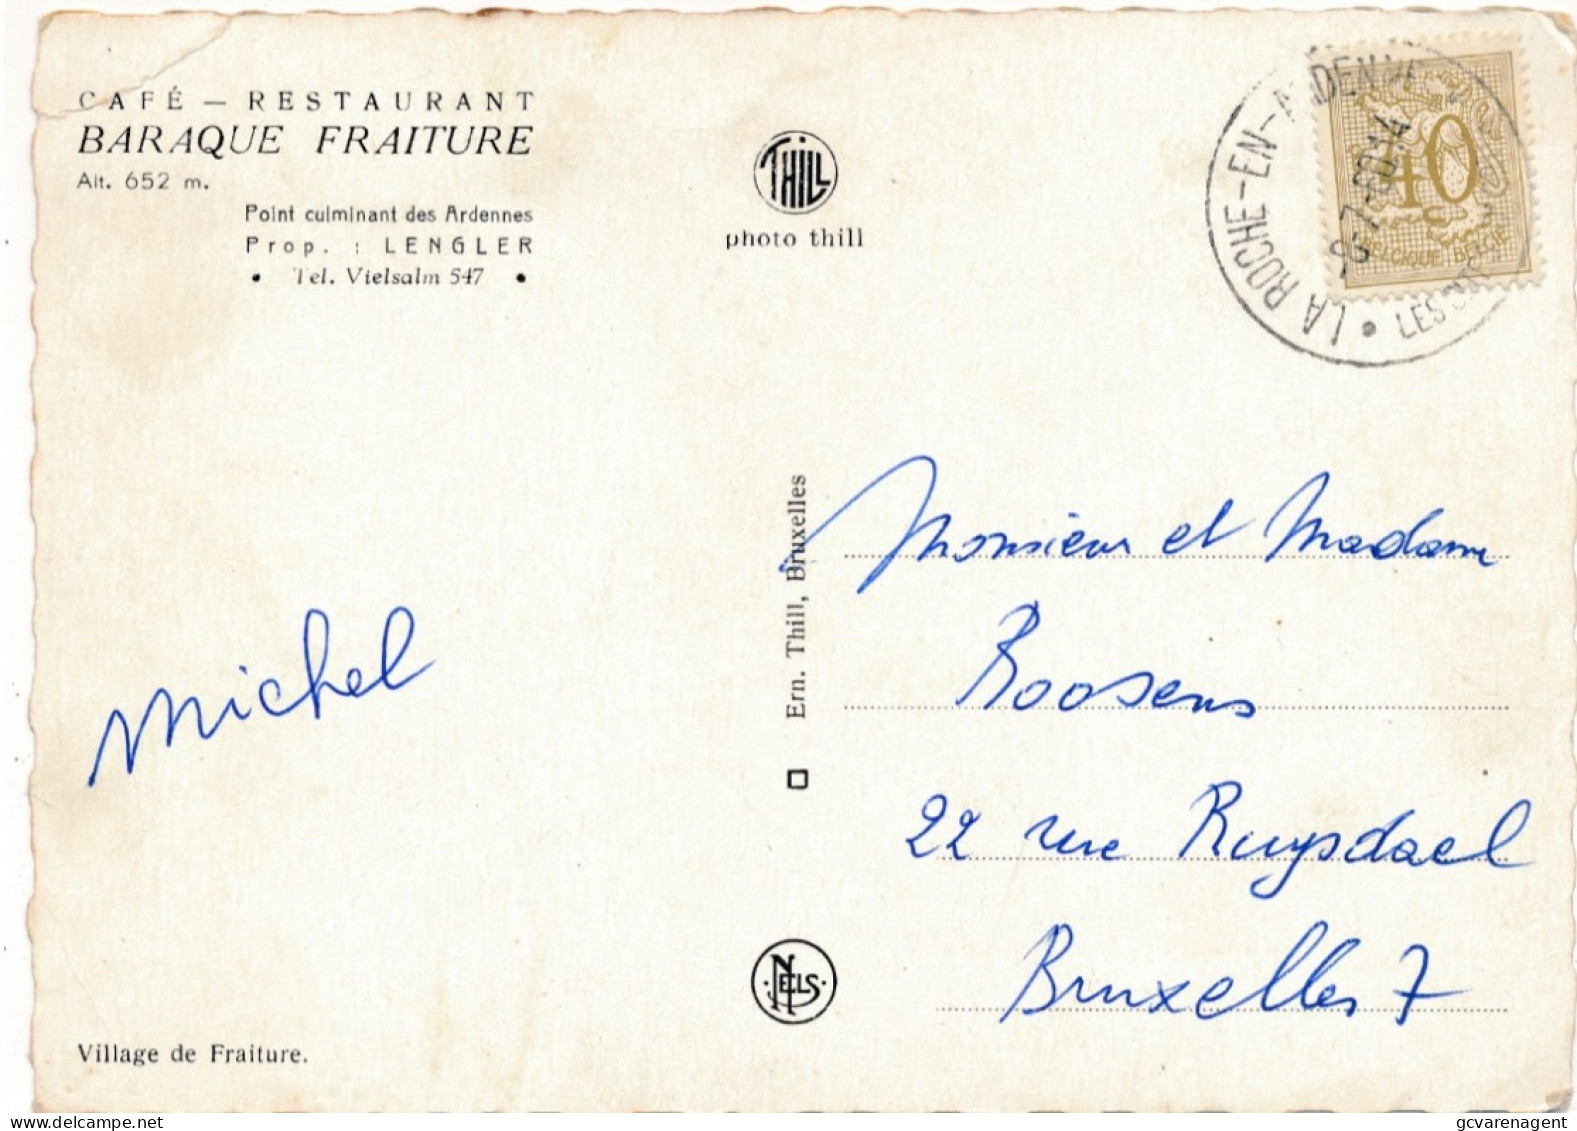 CAFÉ — RESTAURANT
BARAQUE FRAITURE
Alt. 652 m.
Point culminant des Ardennes
Prop. : LENGLER
• Tel. Vielsalm 547 •
THILL
photo thill
LA ROCHE-EN-ARDENNE
40
BELGIQUE BELGIË
Ern. Thill, Bruxelles
Monsieur et Madame
Roosens
22 rue Ruysdael
Bruxelles 7
Michel
NELS
Village de Fraiture.
gcvarenagent